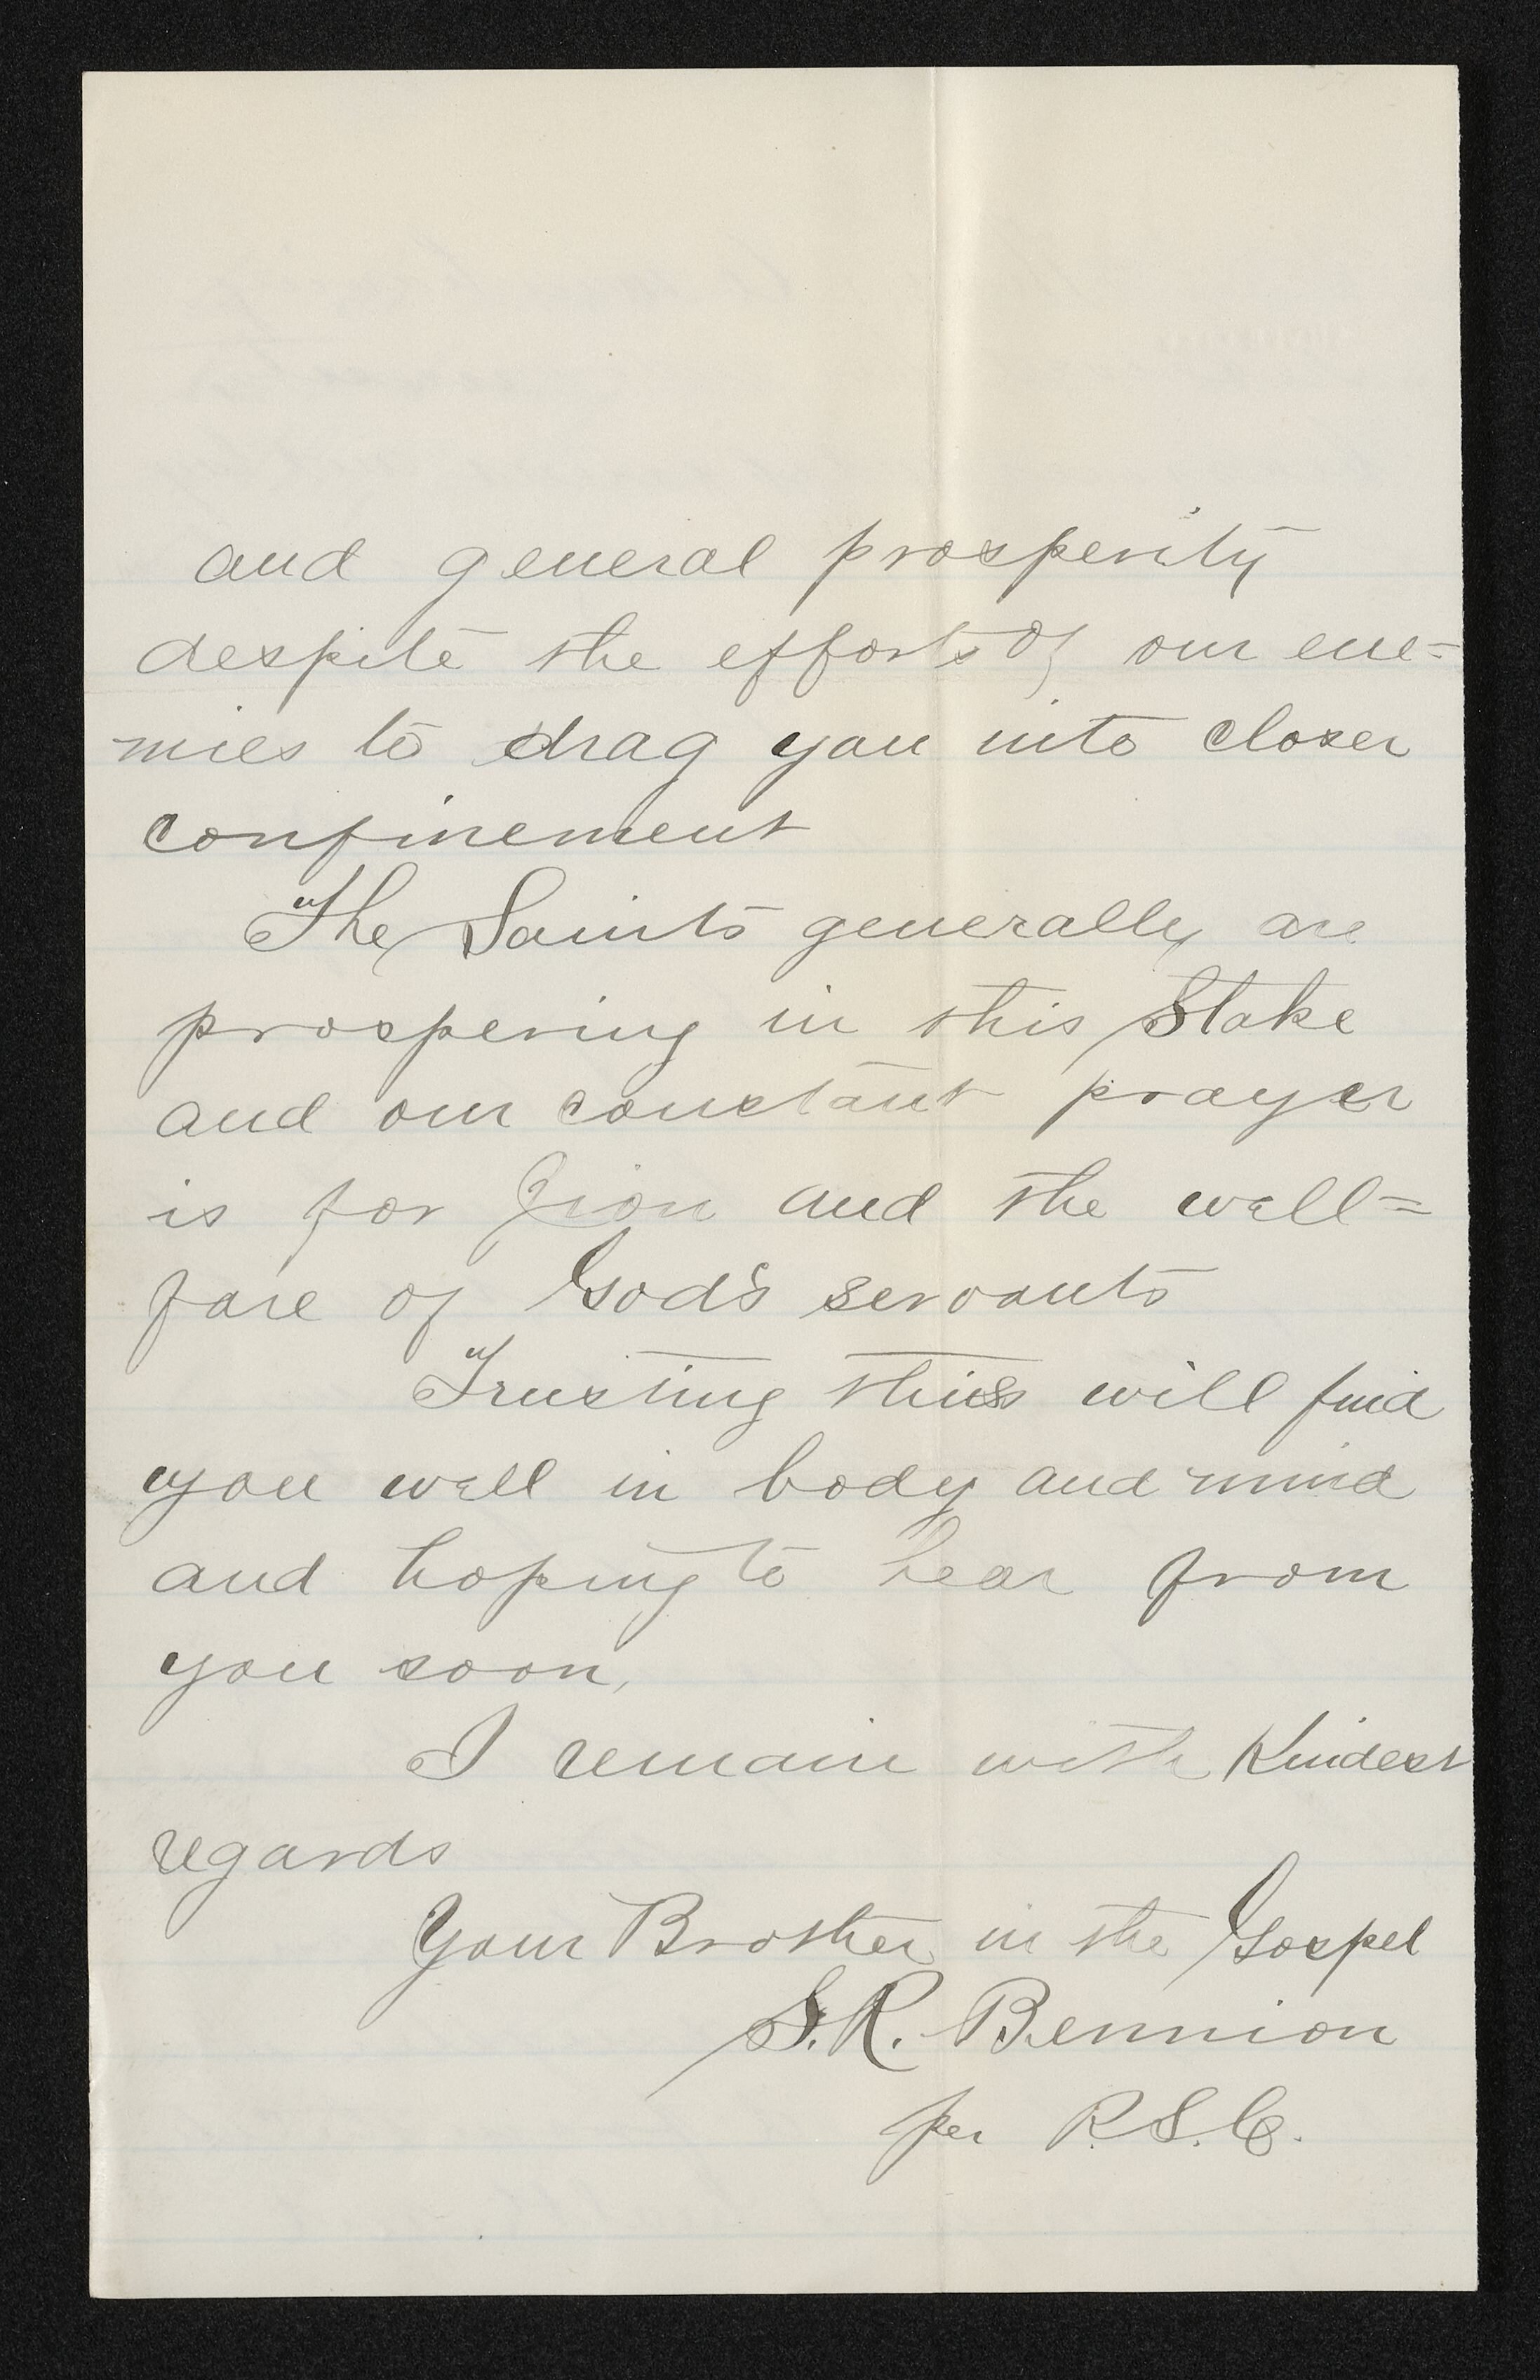 and general prosperity
despite the efforts of our ene=
mies to drag you into closer
confinement
The Saints generally are
prospering in this Stake
and our constant prayer
is for Zion and the well=
fare of God's servants
Trusting this will find
you well in body and mind
and hoping to hear from
you soon,
I remain with Kindest
regards
Your Brother in the Gospel
S.R. Bennion
per R.S.C.